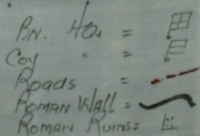 Bn. HQ. =
Coy " =
Roads =
Roman Wall =
Roman Ruins =